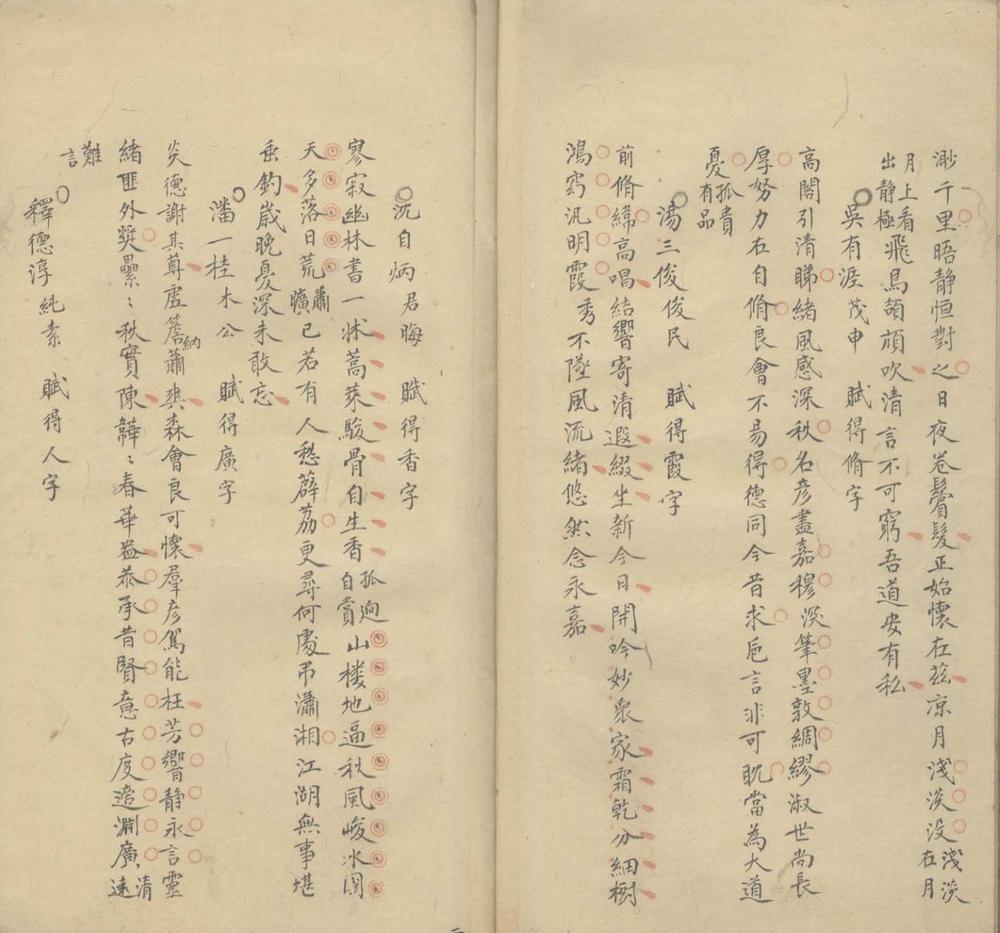 渺千里晤静恒對之日夜卷鬢髮正始懷在茲凉月淺淡没淺淡在月
月上看出静極飛鳥頡頏吹清言不可窮吾道安有私
吳有涯茂申　賦得脩字
高閣引清睇緒風感深秋名彦盡嘉穆淡筆墨敦綢繆淑世尚長
厚努力在自脩良會不易得德同今昔求巵言非可耽當為大道
憂孤貴有品
湯三俊俊民　賦得霞字
前脩緯高唱結響寄清遐綴坐新今日開吟妙衆家霜乾分細樹
鴻窈汎明霞秀不墜風流緒悠然念永嘉
沈自炳君晦　賦得香字
寥寂幽林書一牀蒿萊駿骨自生香孤逈自賞山楼地逼秋風峻水國
天多落日荒蕭曠已若有人愁薜荔更尋何處弔瀟湘江湖無事堪
垂釣歲晚憂深未敢忘
潘一桂木公　賦得廣字
炎德謝其尊虚簷納蕭爽森會良可懷羣彦駕能枉芳響静永言靈
緒匪外奬纍〻秋實陳韡〻春華益恭承昔賢意古度邈淵廣清遠
難言
釋德淳純素　賦得人字